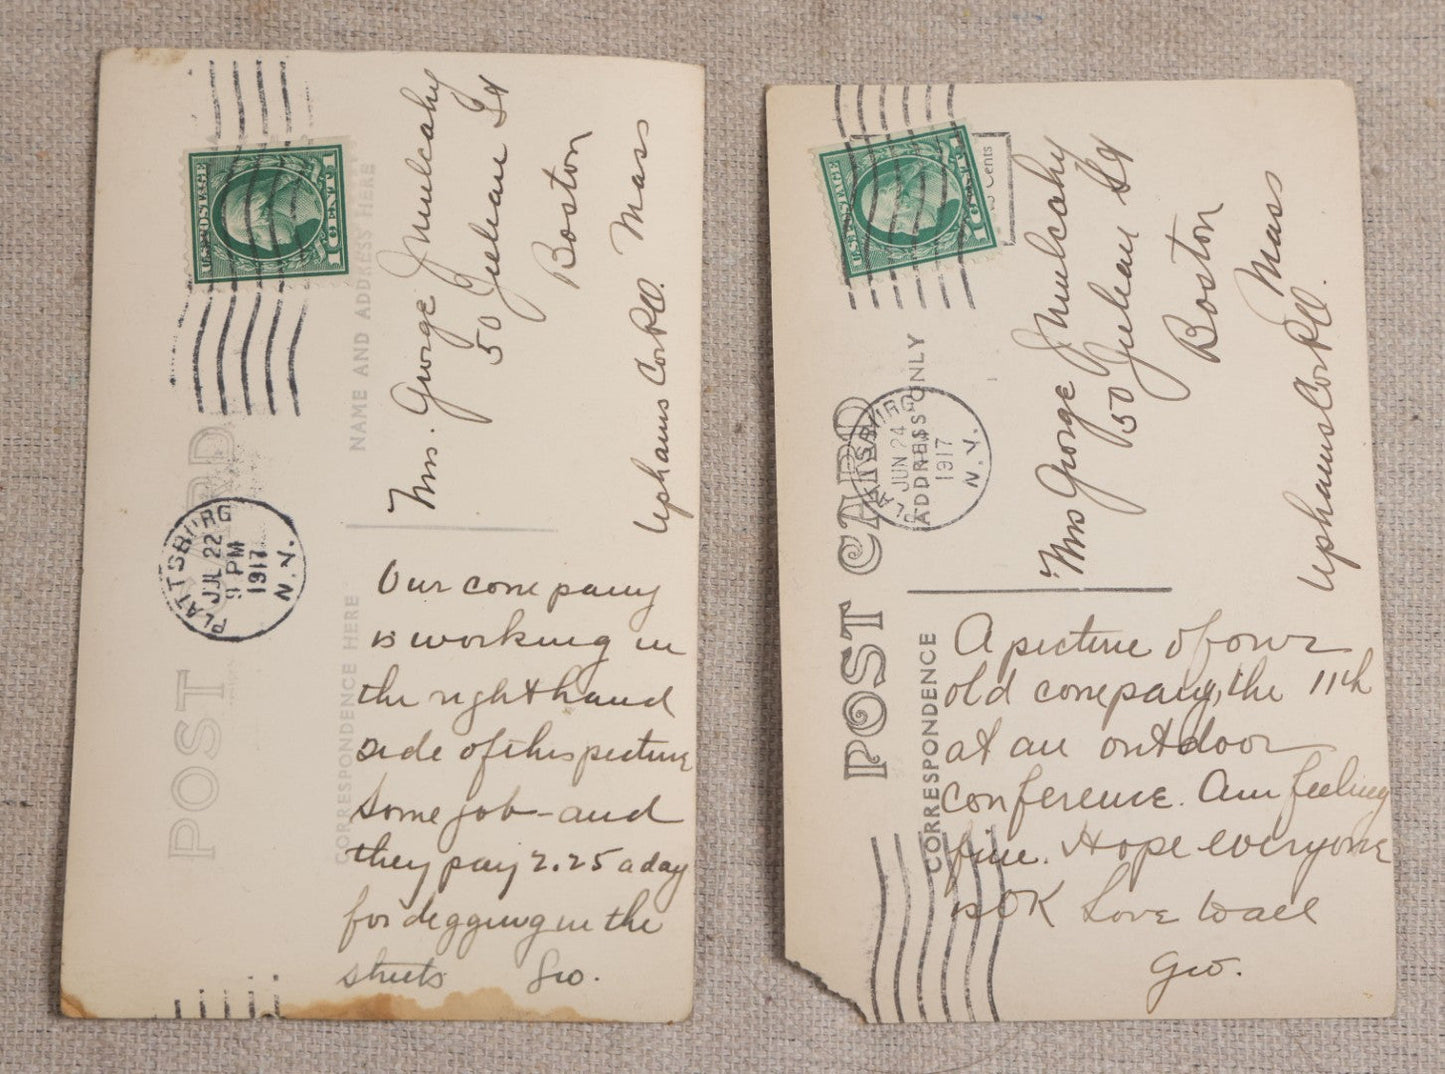 POST CARD
NAME AND ADDRESS HERE
CORRESPONDENCE HERE
U.S. POSTAGE
1 CENT 1
PLATTSBURG
JUL 22
9 PM
1917
N.Y.
Mrs. George J Mulcahy
50 Julean St
Boston
Mass
Uphams Cor P.O.
Our company
is working in
the right hand
side of this picture
Some job - and
they pay 2.25 a day
for digging in the
streets Geo.
POST CARD
ADDRESS ONLY
CORRESPONDENCE
Cents
U.S. POSTAGE
1 CENT 1
PLATTSBURG
JUN 24
1917
N.Y.
Mrs George J Mulcahy
50 Julean St
Boston
Mass
Uphams Cor P.O.
A picture of our
old company, the 11th
at an outdoor
conference. Am feeling
fine. Hope everyone
is OK Love to all
Geo.